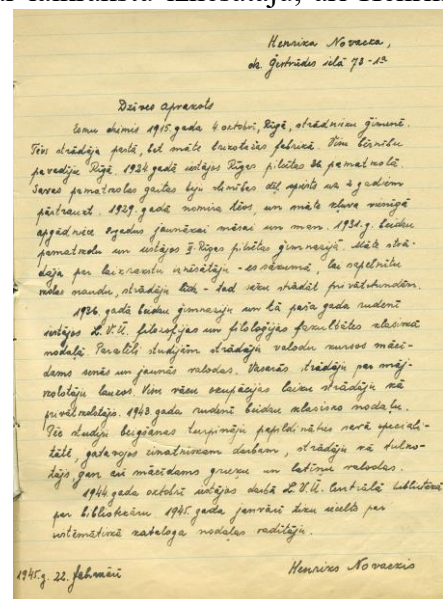 Henrika Novacka,
dz. Ģertrūdes ielā 73 -
Dzīves apraksts
Esmu dzimis 1915. gada 4. oktobrī, Rīgā, strādnieku ģimenē.
Tēvs strādāja pastā, bet māte fabrikā. Visu bērnību
pavadīju Rīgā. 1924. gadā iestājos Rīgas pilsētas pamatskolā
Savas pamatskolas gaitas biju slimības dēļ spiests uz 2 gadiem
pārtraukt. 1929. gadā nomira tēvs, un māte kļuva vienīgā
apgādniece jaunākai māsai un man. 1931. g. beidzu
pamatskolu un iestājos II. Rīgas pilsētas ģimnāzijā. Māte strā-
dāja par laikrakstu iznēsātāju - es sākumā, lai nopelnītu
skolas naudu, strādāju - tad sāku strādāt privātstundām.
1936. gadā beidzu ģimnāziju un tā paša gada rudenī
iestājos L.V.U. filoloģijas un filozofijas fakultātes klasiskā
nodaļā. Paralēli studijām strādāju valodu kursos mācī-
dams senās un jaunās valodas. Vasarās strādāju par māj-
skolotāju laukos. Visu vācu okupācijas laiku strādāju kā
privātskolotājs. 1943. gada rudenī beidzu klasisko nodaļu.
Pēc studiju beigšanas turpināju papildināties savā speciali-
tātē, gatavojos zinātniskam darbam, strādāju kā tulko-
tājs, gan arī mācīdams grieķu un latīņu valodas.
1944. gada oktobrī iestājos darbā L.V.U. Centrālā bibliotēkā
par bibliotekāru. 1945. gada janvārī tiku iecelts par
sistemātiskā kataloga nodaļas vadītāju.
1945. g. 22. februārī
Henriks Novackis